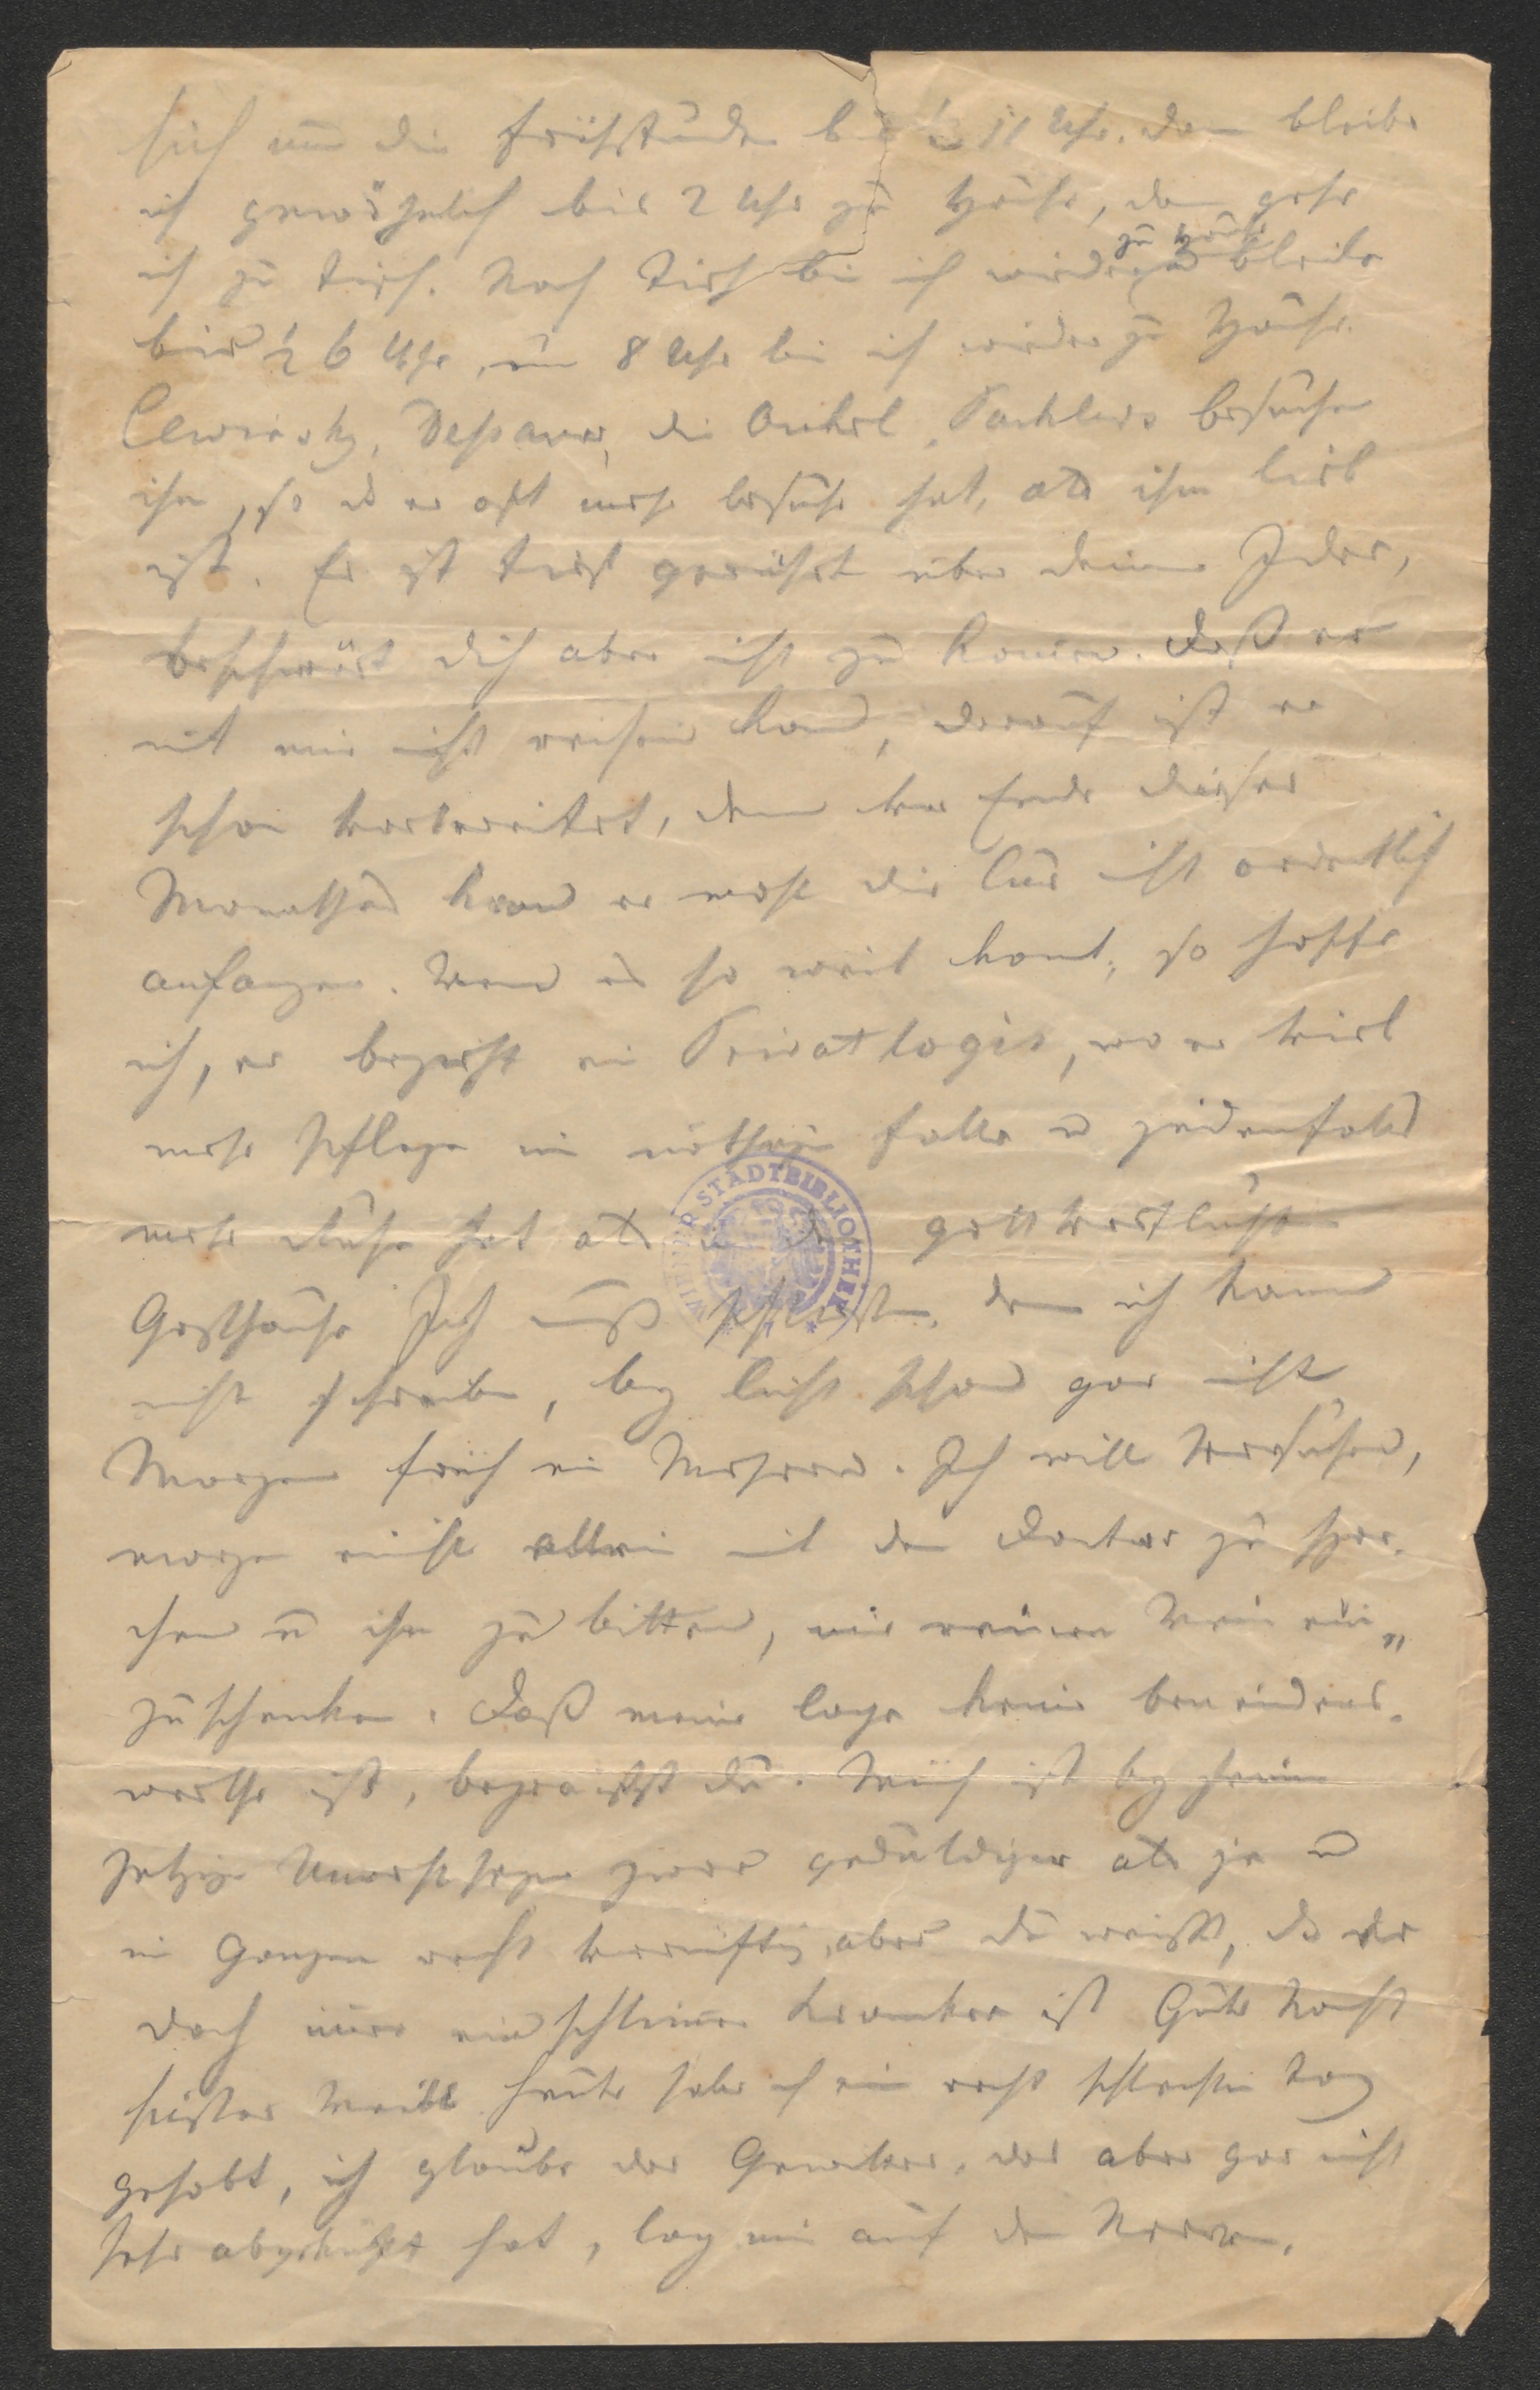 sich um die Frühstunden bis ½ 11 Uhr. dann bleibe
ich gewöhnlich bis 2 Uhr zu Hause, dann gehe
ich zu Tisch. Nach Tisch bin ich wieder zu Hause bleibe
bis ½ 6 Uhr, um 8 Uhr bin ich wieder zu Hause.
Dessauer, die Onkel, Pachlers besuchen
ihn, so d er oft mehr Besuche hat, als ihm lieb
ist. Er ist tief gerührt über deine Idee,
beschwört dich aber nicht zu kommen. Daß er
mit mir nicht reisen kann, darauf ist er
schon vorbereitet, denn vor Ende dieses
Monathes kann er wohl die Cur nicht ordentlich
anfangen. Wenn es so weit kommt, so hoffe
ich, er bezieht ein Privatlogis, wo er viel
mehr Pflege im nöthigen Falle u jedenfalls
mehr Ruhe hat als in dem gottverfluchten
Gasthause Ich muß schließen, denn ich kann
nicht schreiben, bey Licht schon gar nicht
Morgen früh ein Mehreres. Ich will versuchen,
morgen nicht allein mit dem Doctor zu spre-
chen u ihn zu bitten, mir reinen Wein ein„
zuschenken. Daß meine Lage keine beneidens-
werthe ist, begreifst du. Mich ist bey seinem
jetzigen Unwohlseyn zwar geduldiger als je u
im Ganzen recht vernünftig, aber du weißt, daß er
doch immer ein schlimmer Kranker ist Gute Nacht
süßes Weibl heute habe ich einen recht schlechten Tag
gehabt, ich glaube das Gewitter, das aber gar nicht
sehr abgekühlt hat, lag mir auf den Nerven.
WIENER STADTBIBLIOTHEK